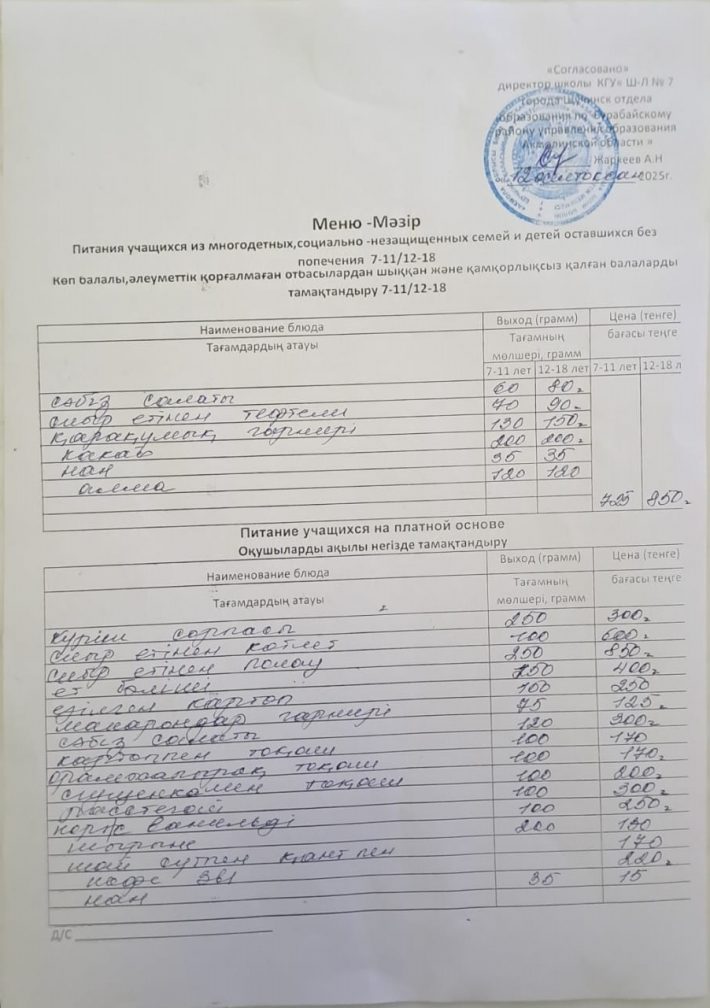 «Согласовано»
директор школы КГУ« Ш-Л № 7
города Щучинск отдела
образования по Бурабайскому
району управления образования
Акмолинской области »
Жаркеев А.Н
12 желтоқсан 2025г.
Меню -Мәзір
Питания учащихся из многодетных,социально -незащищенных семей и детей оставшихся без
попечения 7-11/12-18
Көп балалы,әлеуметтік қорғалмаған отбасылардан шыққан және қамқорлықсыз қалған балаларды
тамақтандыру 7-11/12-18
Наименование блюда Выход (грамм) Цена (тенге)
Тағамдардың атауы Тағамның мөлшері, грамм бағасы теңге
7-11 лет 12-18 лет 7-11 лет 12-18 л
сәбіз салаты 60 80
сиыр етінен тефтели 70 90
қарақұмық гарнирі 130 150
какао 200 200
нан 35 35
алма 120 120
725 850
Питание учащихся на платной основе
Оқушыларды ақылы негізде тамақтандыру
Наименование блюда Выход (грамм) Цена (тенге)
Тағамдардың атауы Тағамның мөлшері, грамм бағасы теңге
күріш сорпасы 250 300
сиыр етінен котлет 100 600
сиыр етінен полау 250 850
ет 250 400
езілген картоп 100 250
макарондар гарнирі 75 125
сәбіз салаты 120 300
картоппен тоқаш 100 170
тоқаш 100 170
тоқаш 100 200
100 300
корж ванильді 100 250
шырыне 200 130
шай сүтпен қантпен 170
кофе 3в1 220
нан 35 15
Д/С